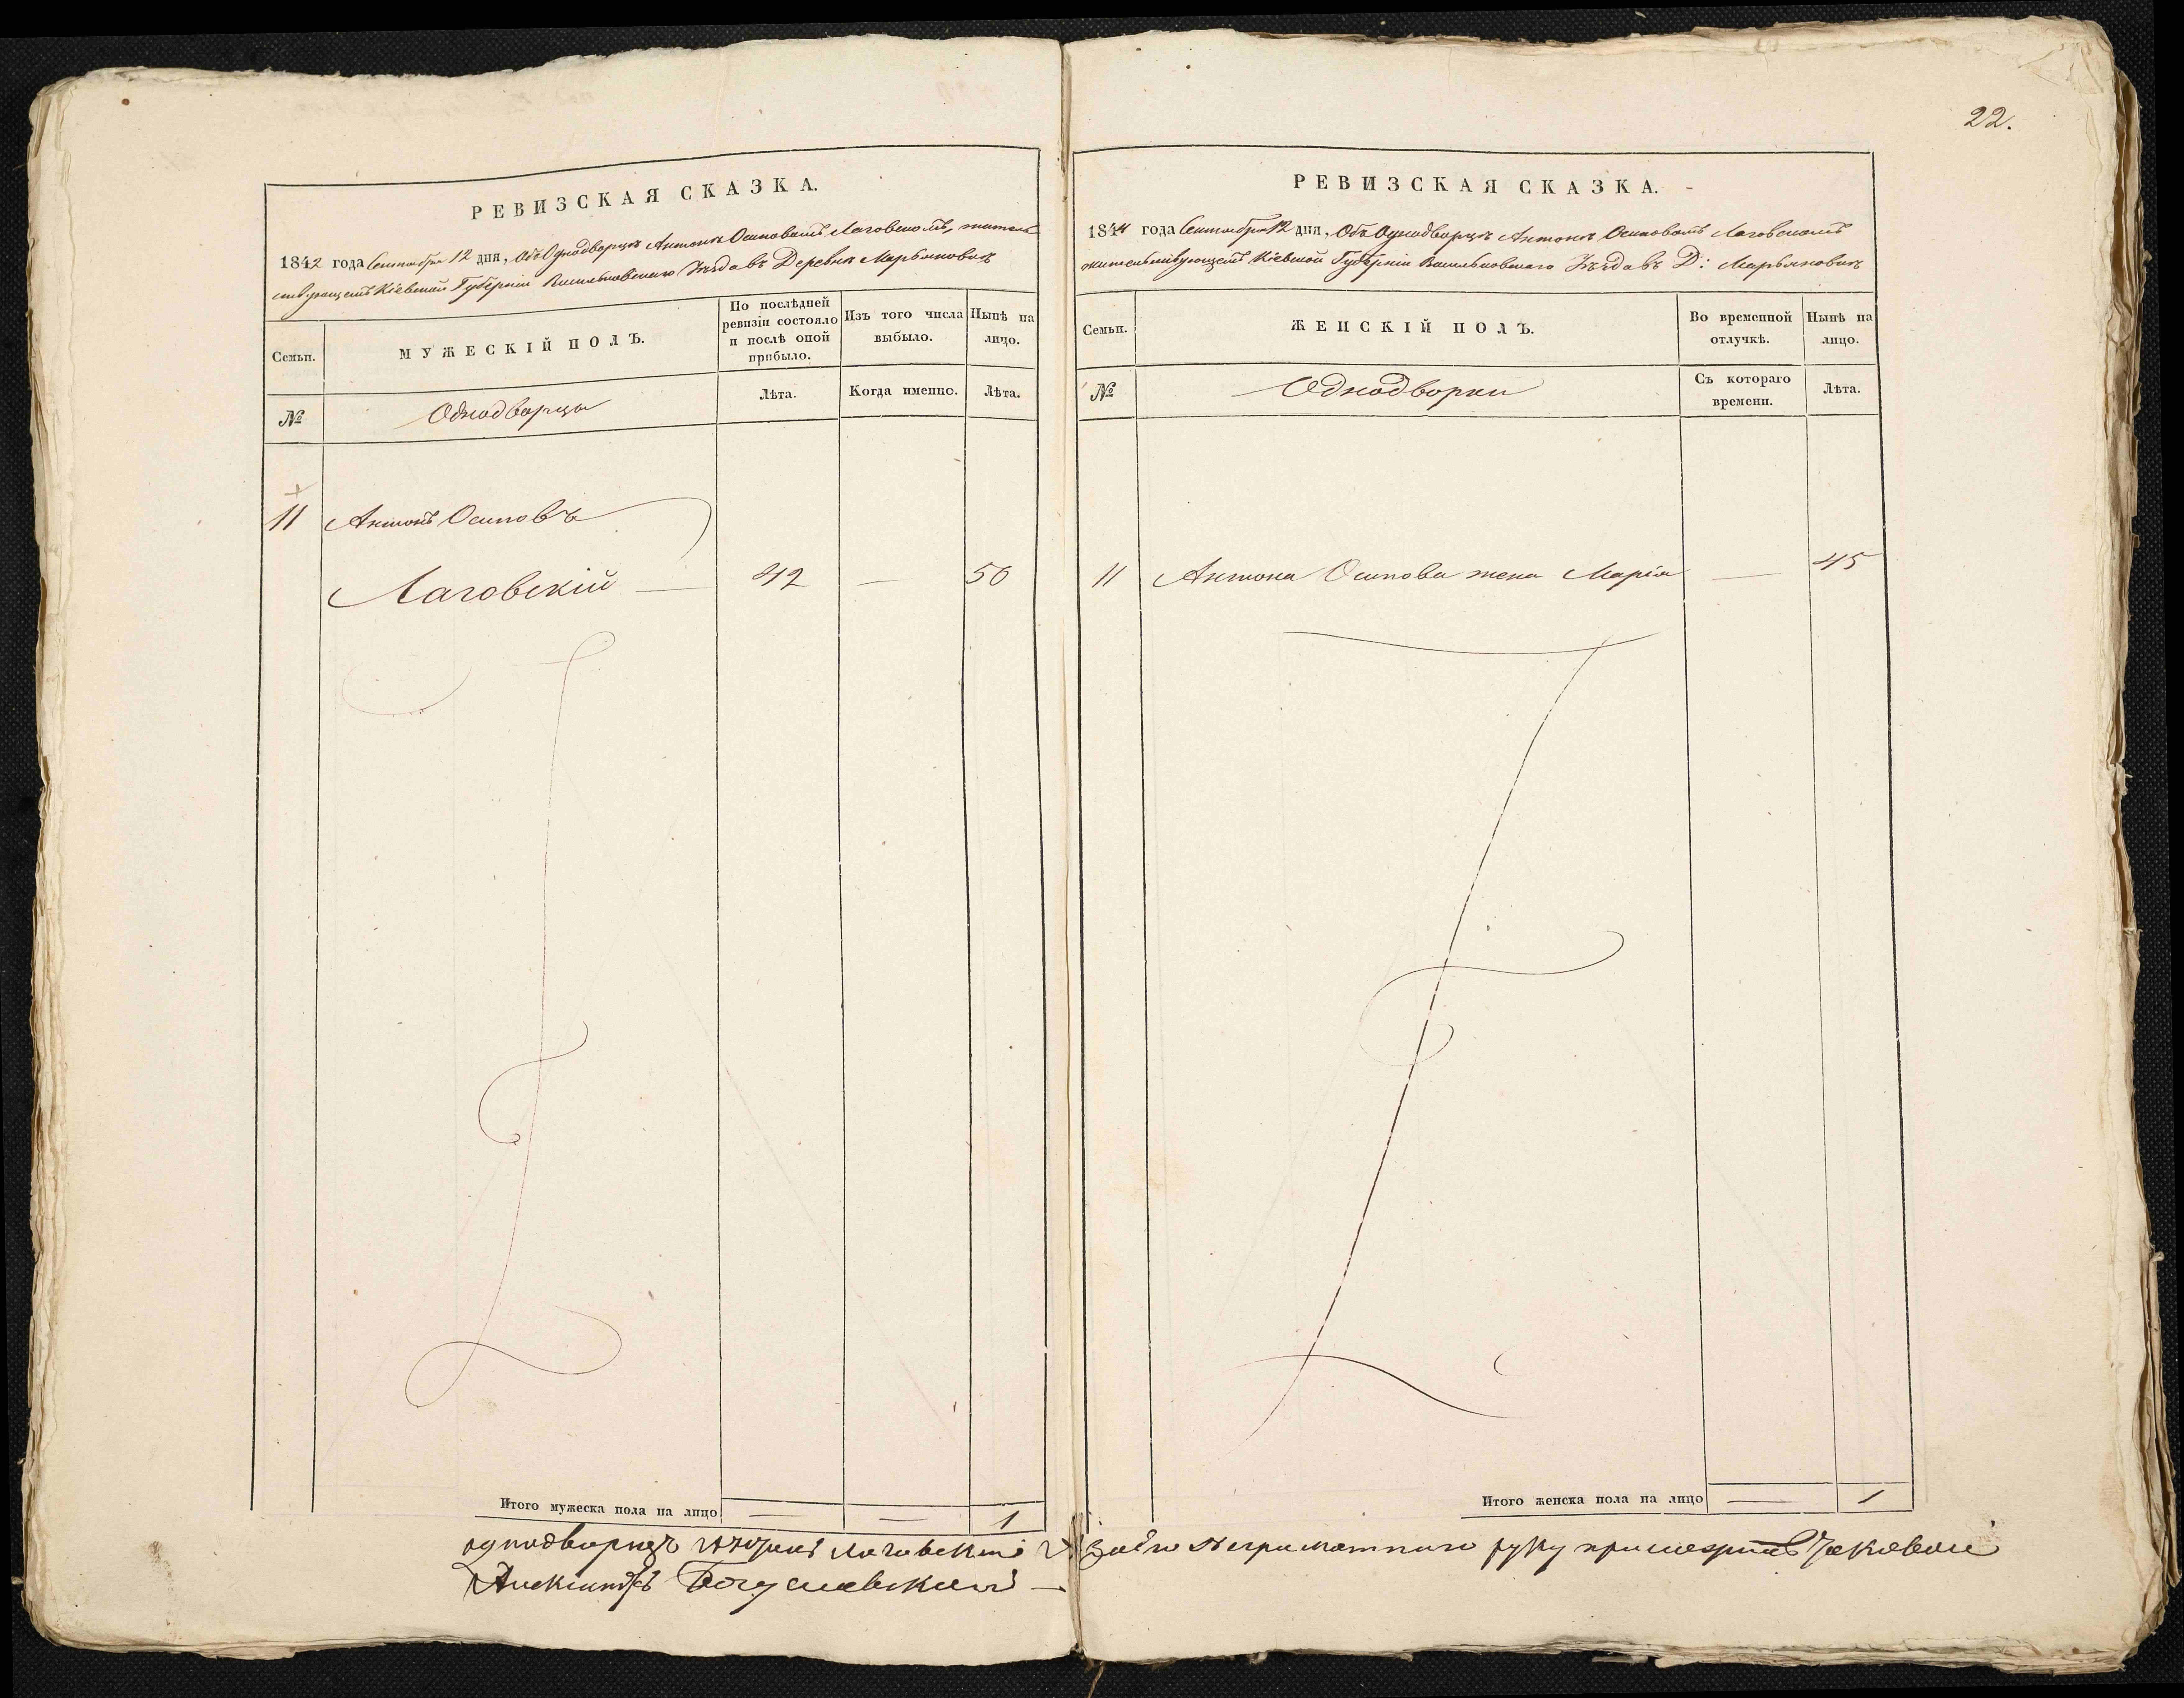 22.
РЕВИЗСКАЯ СКАЗКА.
1842 года Сентября 12 дня, Объ Однодворцѣ Антонѣ Осиповомъ Лаговскомъ, житель-
ствующемъ Кіевской Губерніи Васильковскаго Уѣзда въ Деревнѣ Марьяновкѣ
Семьи.
МУЖЕСКІЙ ПОЛЪ.
По послѣдней
ревизіи состояло
и послѣ оной
прибыло.
Изъ того числа
выбыло.
Нынѣ на
лицо.
№
Однодворцы
Лѣта.
Когда именно.
Лѣта.
11 Антонъ Осиповъ
Лаговскій — 42 — 50
Итого мужеска пола на лицо — — 1
РЕВИЗСКАЯ СКАЗКА.
1844 года Сентября 12 дня, Объ Однодворцѣ Антонѣ Осиповомъ Лаговскомъ
жительствующемъ Кіевской Губерніи Васильковскаго Уѣзда въ Д: Марьяновкѣ
Семьи.
ЖЕНСКІЙ ПОЛЪ.
Во временной
отлучкѣ.
Нынѣ на
лицо.
№
Однодворки
Съ котораго
времени.
Лѣта.
11 Антона Осипова жена Марія — 45
Итого женска пола на лицо — 1
однодворецъ Лаговскій неграмотного руку
Богуславскій —